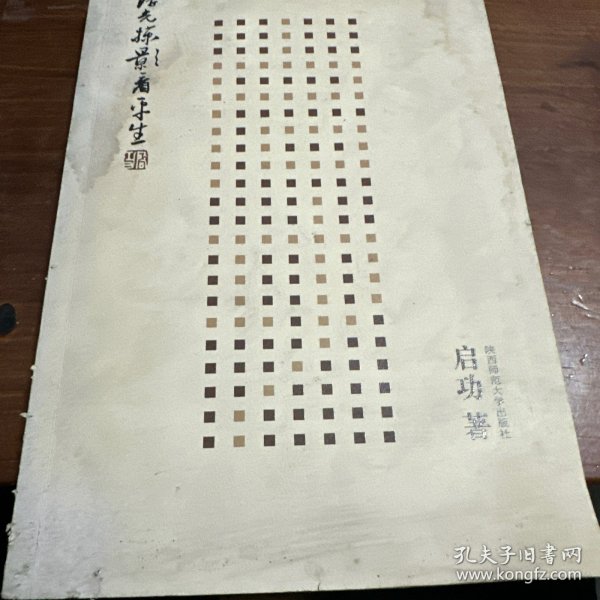 探景看平生
启功著
陕西师范大学出版社
孔夫子旧书网
www.kongfz.com